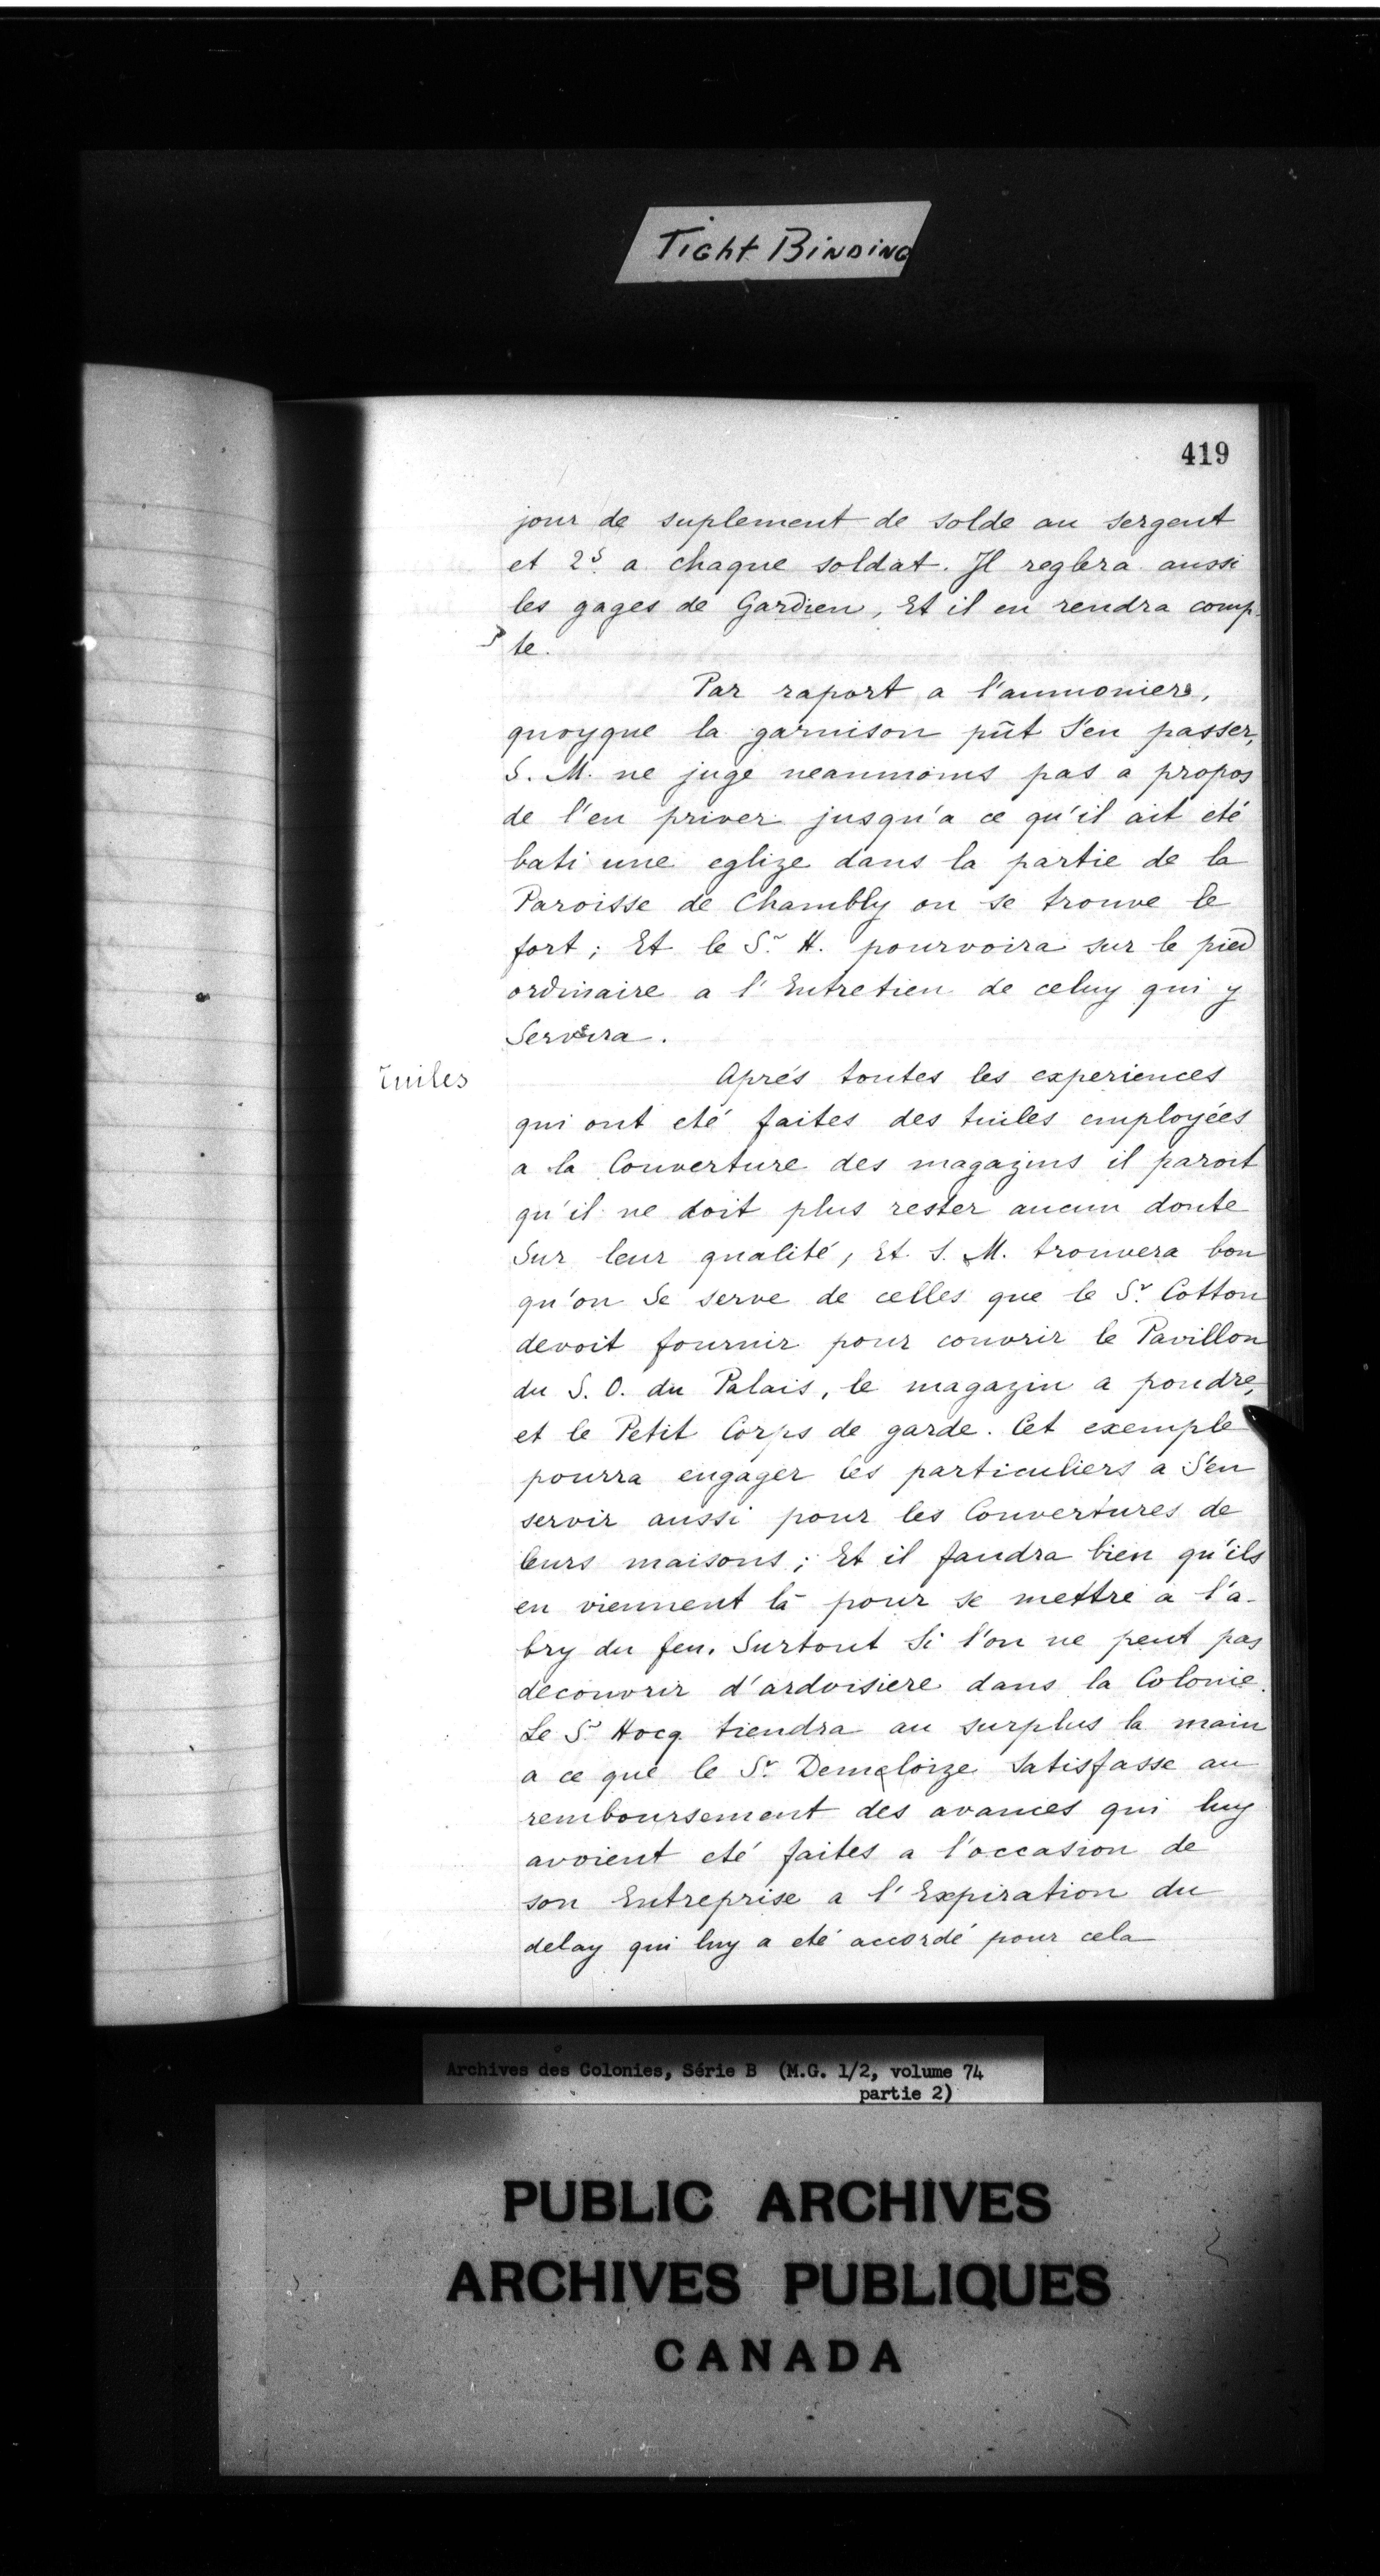 Tight Binding
419
jour de suplement de solde au sergent
et 2s. a chaque soldat. Il reglera aussi
les gages de Gardien, Et il en rendra comp-
te.
Par raport a l'aumonier,
quoyque la garnison pût s'en passer,
S. M. ne juge neanmoins pas a propos
de l'en priver jusqu'a ce qu'il ait eté
bati une eglize dans la partie de la
Paroisse de Chambly ou se trouve le
fort ; Et le Sr. H. pourvoira sur le pied
ordinaire a l'Entretien de celuy qui y
Servira.
Tuiles
Aprés toutes les experiences
qui ont eté faites des tuiles employées
a la Couverture des magazins il paroit
qu'il ne doit plus rester aucun doute
Sur leur qualité, Et S. M. trouvera bon
qu'on Se serve de celles que le Sr. Cotton
devoit fournir pour couvrir le Pavillon
du S. O. du Palais, le magazin a poudre,
et le Petit Corps de garde. Cet exemple
pourra engager les particuliers a S'en
servir aussi pour les Couvertures de
leurs maisons ; Et il faudra bien qu'ils
en viennent là pour se mettre a l'a-
bry du feu. Surtout Si l'on ne peut pas
decouvrir d'ardoisiere dans la Colonie.
Le Sr. Hocq. tiendra au surplus la main
a ce que le Sr. Demeloize Satisfasse au
remboursement des avances qui luy
avoient eté faites a l'occasion de
son Entreprise a l'Expiration du
delay qui luy a eté accordé pour cela
Archives des Colonies, Série B (M.G. 1/2, volume 74
partie 2)
PUBLIC ARCHIVES
ARCHIVES PUBLIQUES
CANADA